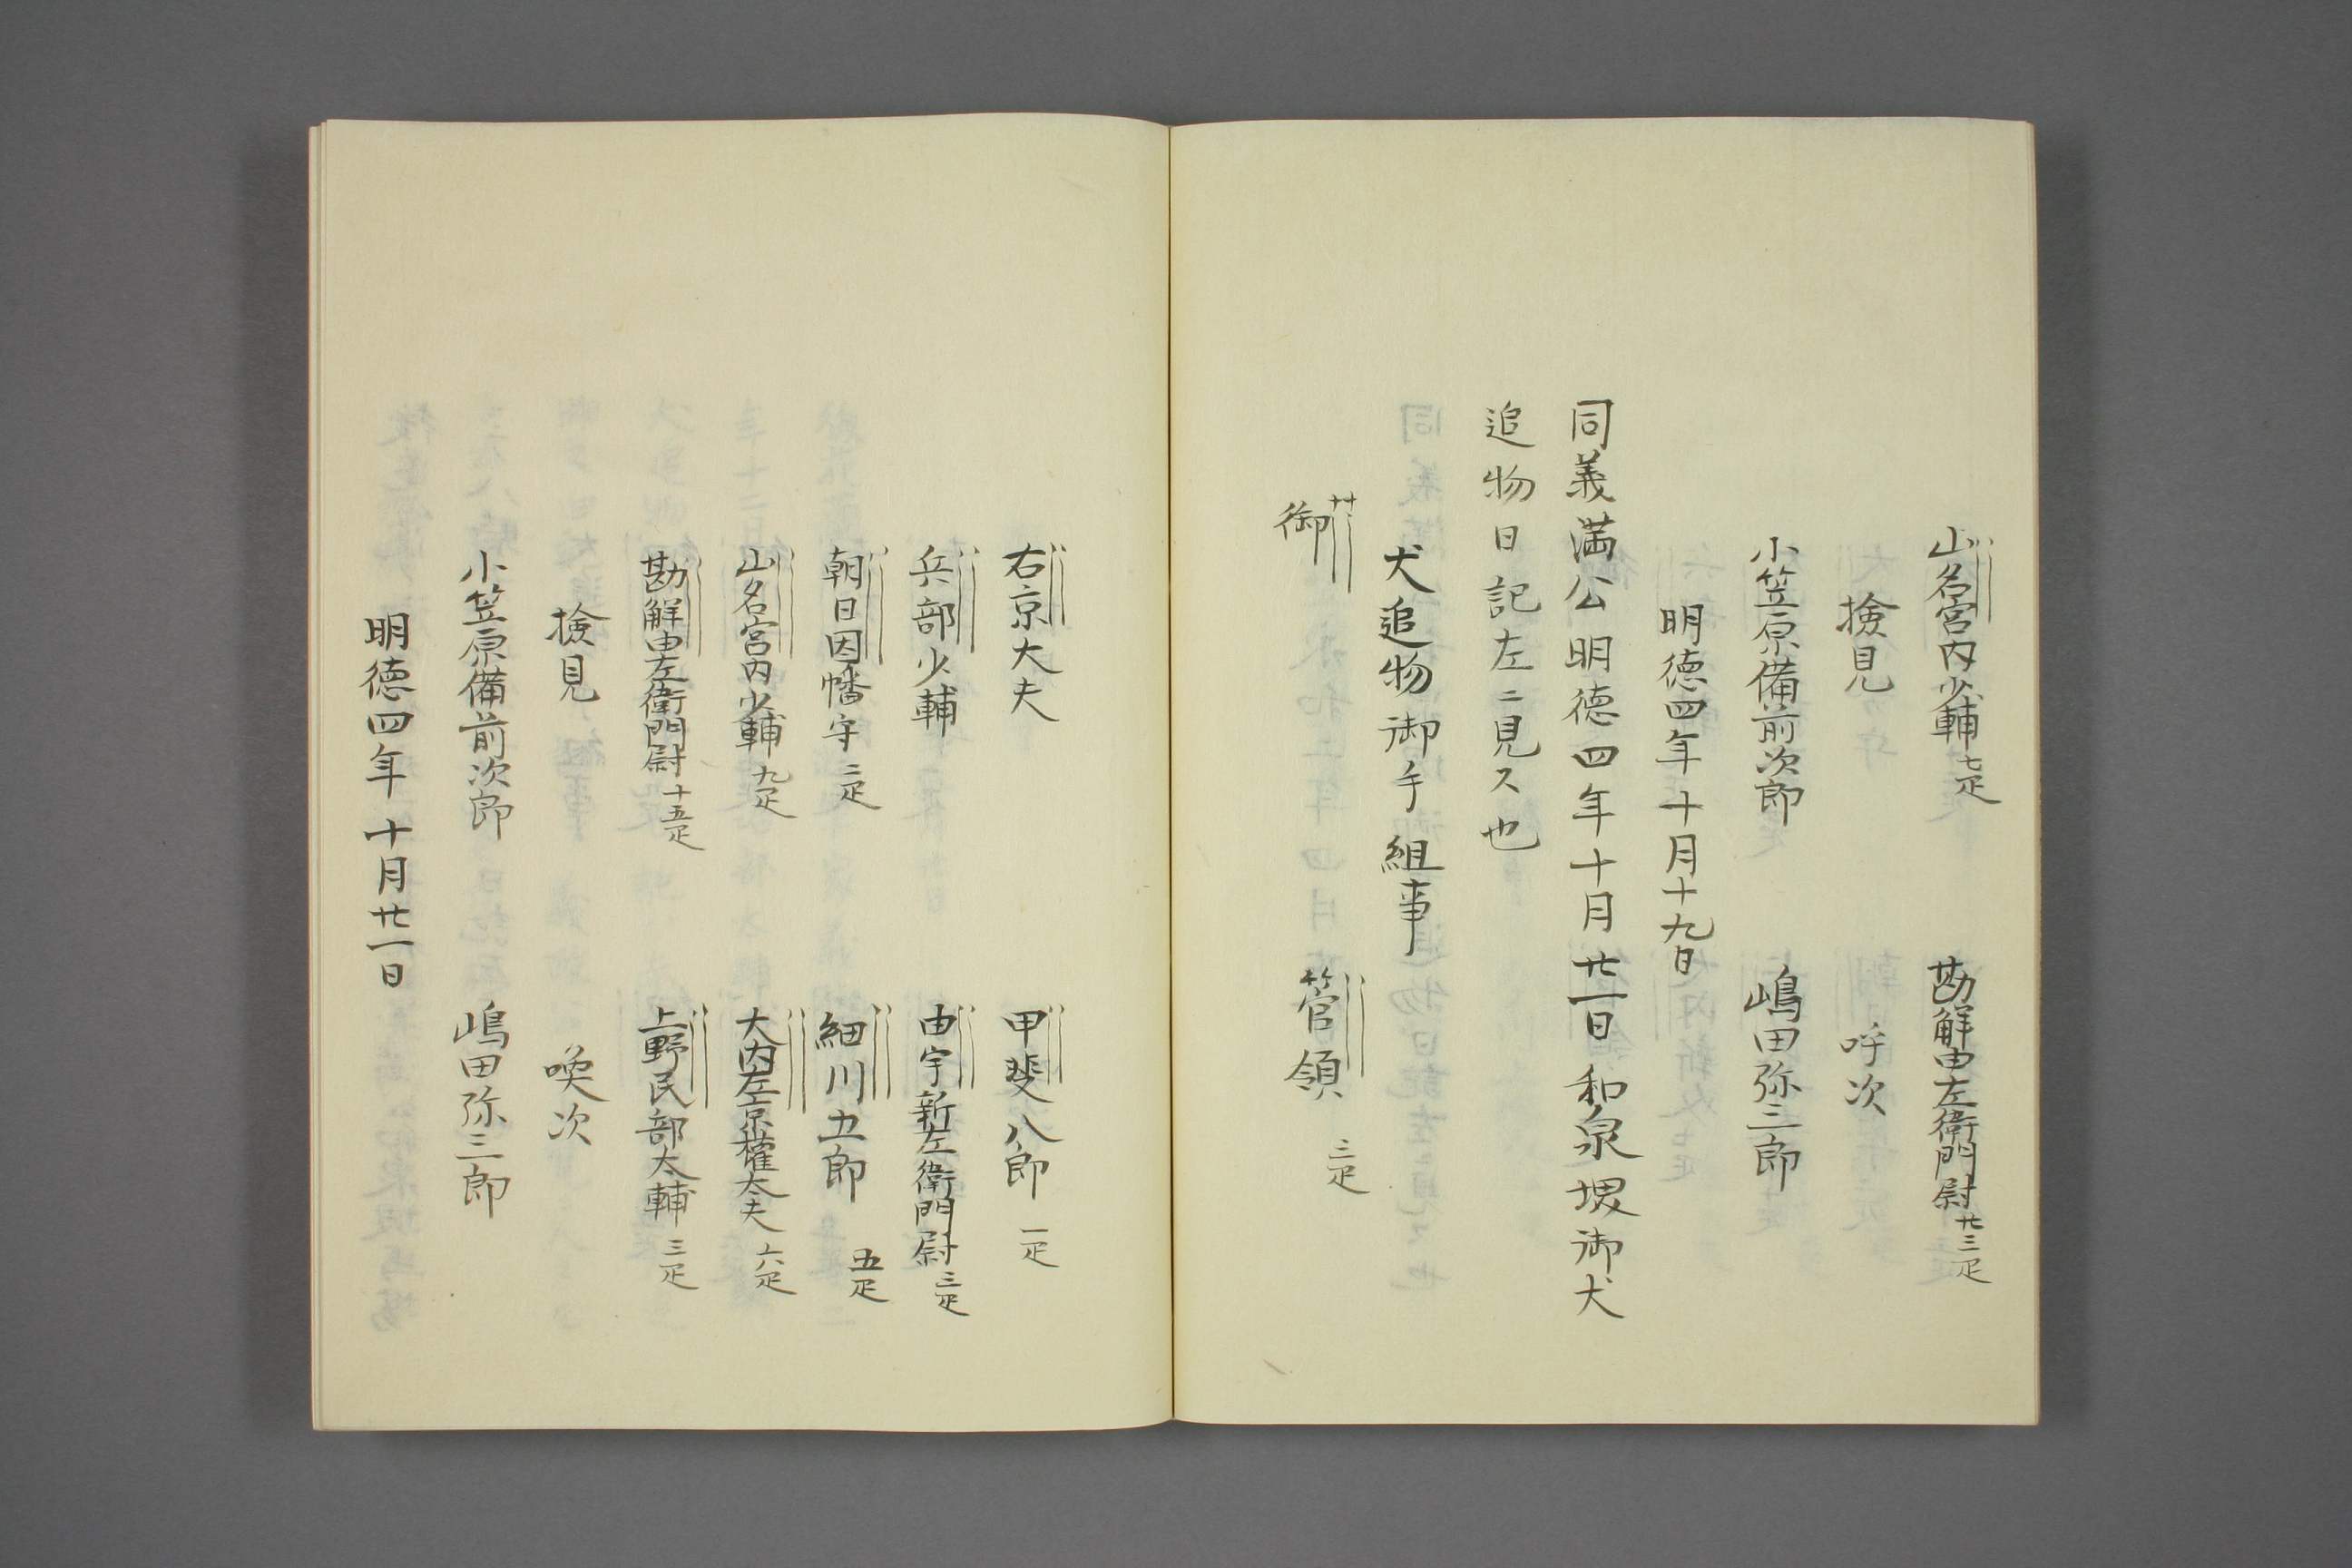 山名宮内少輔 七疋　勘解由左衛門尉 廿三疋
撿見　呼次
小笠原備前次郎　嶋田弥三郎
明徳四年十月十九日
同義満公明徳四年十月廿一日和泉堺御犬
追物日記左ニ見ヘ也
犬追物御手組事
御　管領 三疋
右京大夫　甲斐八郎 一疋
兵部少輔　由宇新左衛門尉 三疋
朝日因幡守 二疋　細川五郎 五疋
山名宮内少輔 九疋　大内左京權大夫 六疋
勘解由左衛門尉 十五疋　上野民部大輔 三疋
撿見　喚次
小笠原備前次郎　嶋田弥三郎
明徳四年十月廿一日